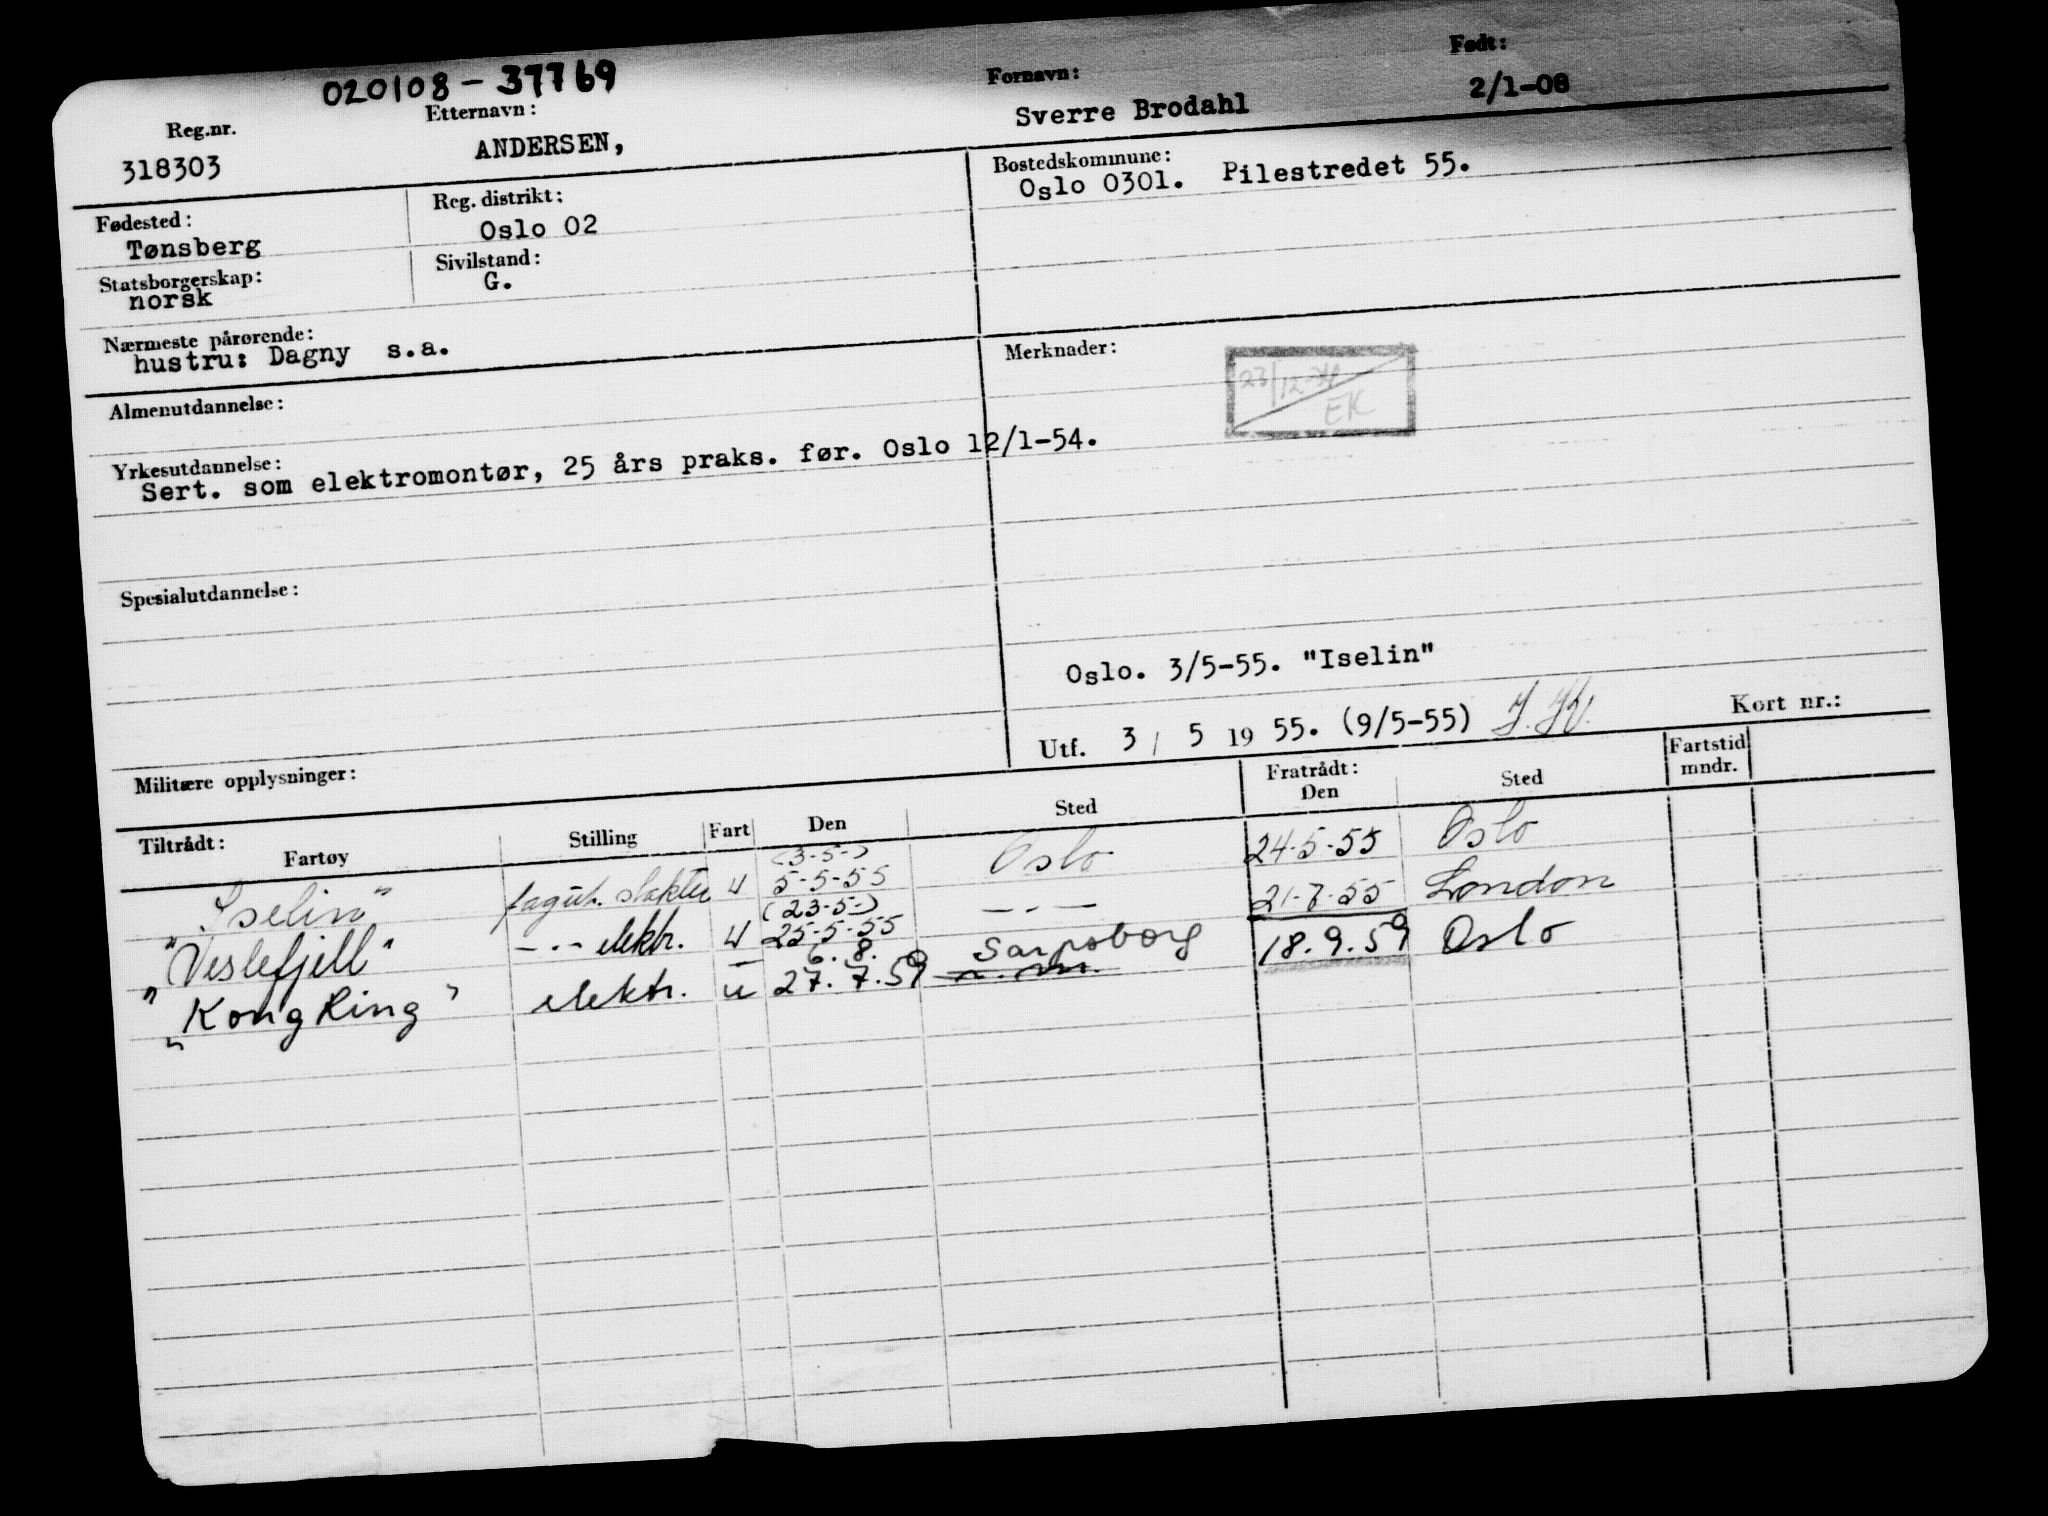 020108-37769
Reg.nr. Etternavn: Fornavn: Født:
318303 ANDERSEN, Sverre Brodahl 2/1-08
Fødested: Reg. distrikt: Bostedskommune:
Tønsberg Oslo 02 Oslo 0301. Pilestredet 55.
Statsborgerskap: Sivilstand:
norsk G.
Nærmeste pårørende:
hustru: Dagny s.a.
Merknader:
23/12-74
EK
Almenutdannelse:
Yrkesutdannelse:
Sert. som elektromontør, 25 års praks. før. Oslo 12/1-54.
Spesialutdannelse:
Oslo. 3/5-55. "Iselin"
Utf. 3 / 5 19 55. (9/5-55)
Kort nr.:
Militære opplysninger:
Tiltrådt: Fratrådt: Fartstid
Fartøy Stilling Fart Den Sted Den Sted mndr.
(3-5-)
"Iselin" U 5-5-55 Oslo 24-5-55 Oslo
(23-5-)
"Veslefjell" -"- elektr. U 25-5-55 -"- 21-7-55 London
6. 8. Sarpsborg
"Kong Ring" elektr. u 27.7.59 18.9.59 Oslo